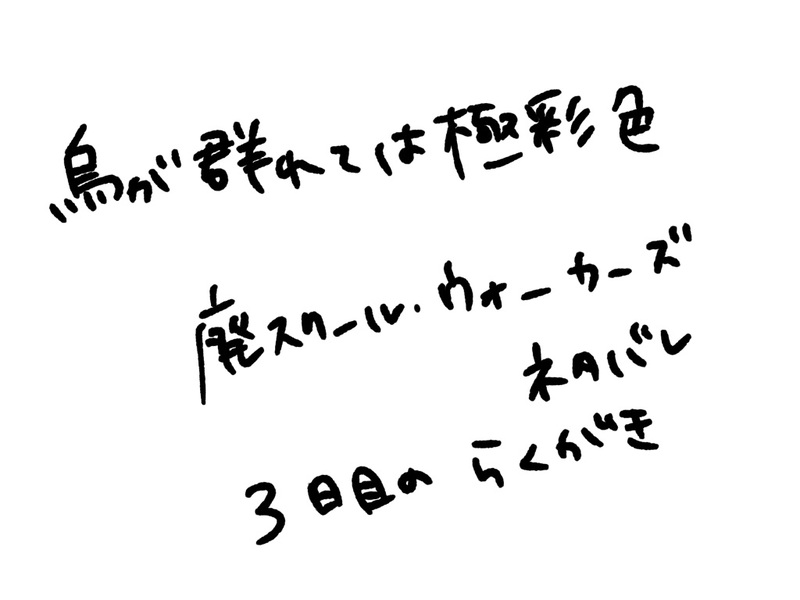 鳥が群れては極彩色
廃スクール・ウォーカーズ
ネタバレ
3日目のらくがき